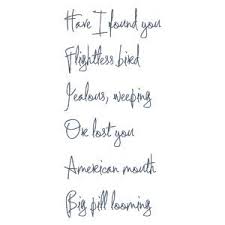 Have I found you
Flightless bird
Jealous, weeping
Or lost you
American mouth
Big pill looming